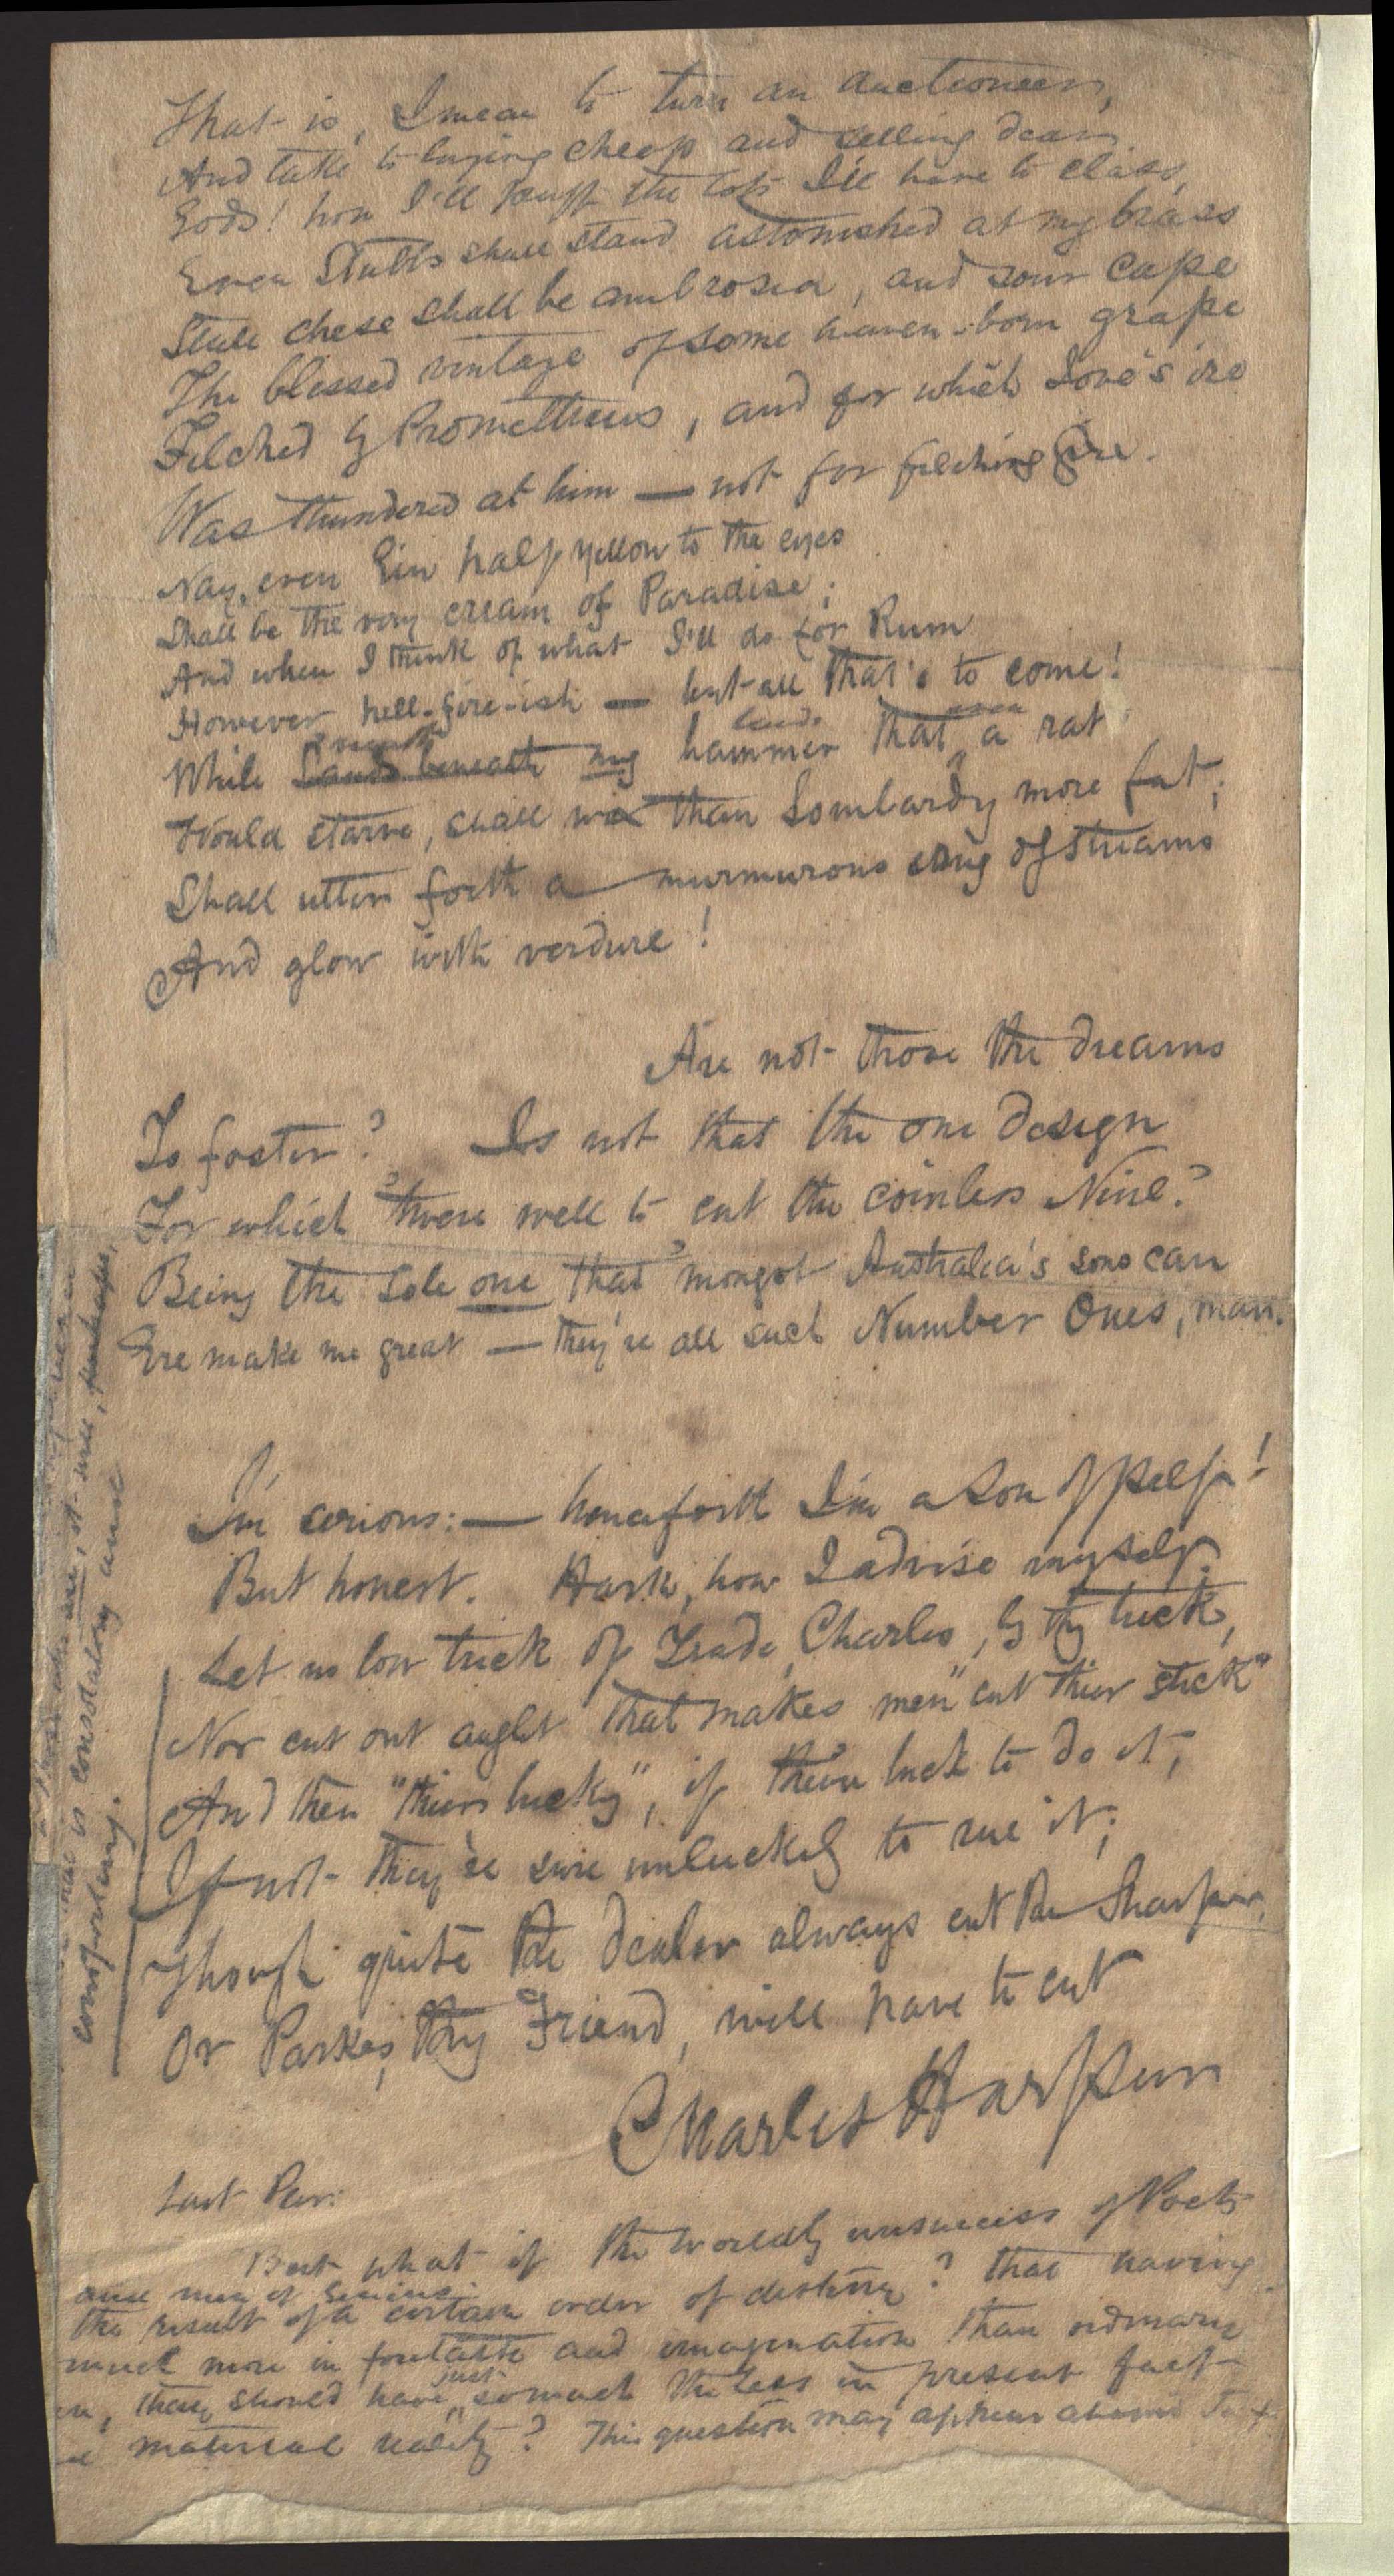 That is, I mean to turn an auctioneer,
And take to buying cheap and selling dear
Gods! how I'll puff the lots I'll have to class,
Even Stubbs shall stand astonished at my brass
Stale chese shall be ambrosia, and sour Cape
The blessed vintage of some heaven-born grape
Filched by Prometheus, and for which Jove's ire
Was thundered at him — not for filching fire.
Nay, even Gin half yellow to the eyes
Shall be the very cream of Paradise;
And when I think of what I'll do for Rum
However hell-fire-ish — but all that's to come!
lands even
While Lands beneath my hammer that a rat
Would starve, shall wax than Lombardy more fat;
Shall utter forth a murmurous song of streams
And glow with verdure!
Are not those the dreams
To foster? Is not that the one design
For which 'twere well to cut the coinless Nine?
Being the sole one that mongst Australia's sons can
Ere make me great — they're all such Number Ones, man.
I'm serious: — henceforth I'm a Son of pelf!
But honest. Hark, how I advise myself.
Let no low trick of Trade, Charles, by thy trick,
Nor cut out aught that makes men "cut thier stick"
And then "thier lucky", if thier luck to do it;
If not they're sure unluckily to rue it;
Though quite the dealer always cut the Sharper,
Or Parkes, thy Friend, will have to cut
Charles Harpur
Last Par:
But what if the worldly unsuccess of Poets
and men of Genius
the result of a certain order of destiny? that having
much more in foretaste and imagination than ordinary
just
they should have somuch the less in present fact
material reality? This question may appear absurd
it were, perhaps,
is consolatory
comforting.